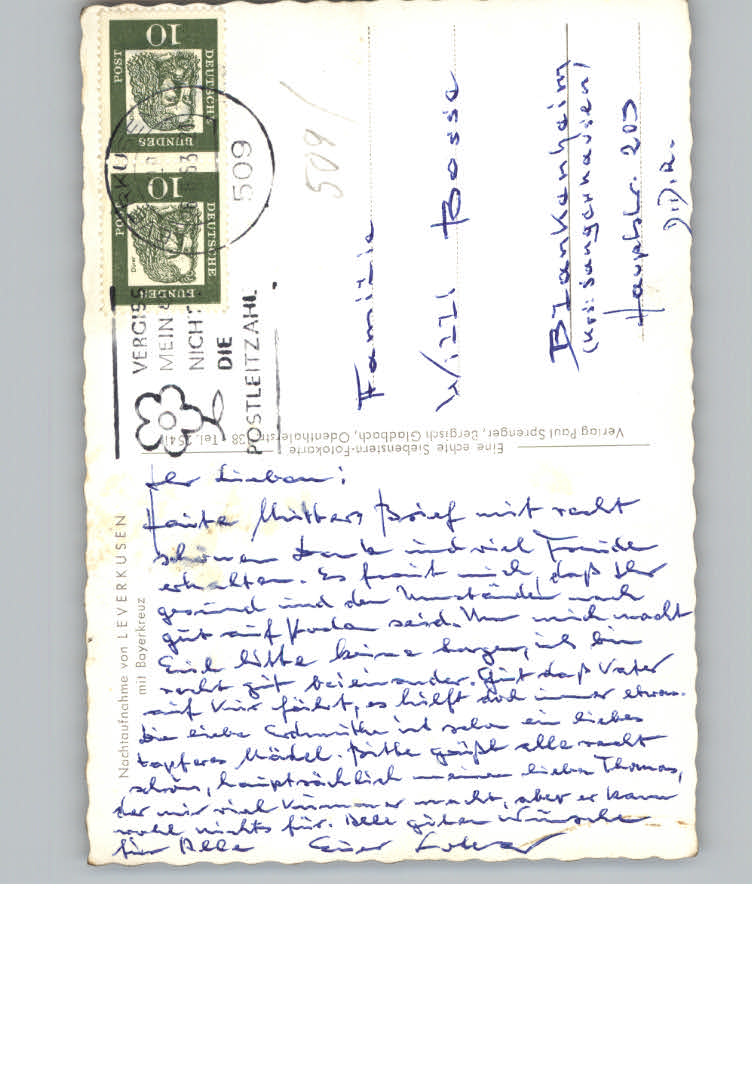 Nachtaufnahme von LEVERKUSEN
mit Bayerkreuz
Ihr Lieben!
Heute Mutters Brief mit recht
schönen Dank und viel Freude
erhalten. Es freut mich, daß Ihr
gesund und den Umständen nach
gut auf seid. Um mich macht
Euch bitte keine Sorgen, ich bin
recht gut beieinander. Gut daß Vater
auf Kur fährt, es hilft doch immer etwas.
Die liebe ist schon ein liebes
tapferes Mädel. Bitte grüßt alle recht
schön, hauptsächlich meinen lieben Thomas,
der mir viel Kummer macht, aber er kann
wohl nichts für. Alle guten Wünsche
für Alle Euer
Eine echte Siebenstern-Fotokarte
Verlag Paul Sprenger, Bergisch Gladbach, Odenthalerstr. 38 Tel. 2541
DEUTSCHE
BUNDES
POST
10
DEUTSCHE
BUNDES
POST
10
Dürer
509
VERGISS
MEIN
NICHT
DIE
POSTLEITZAHL
509/
Familie
Willi Bosse
Blankenheim
(Krs. Sangerhausen)
Hauptstr. 205
D.D.R.